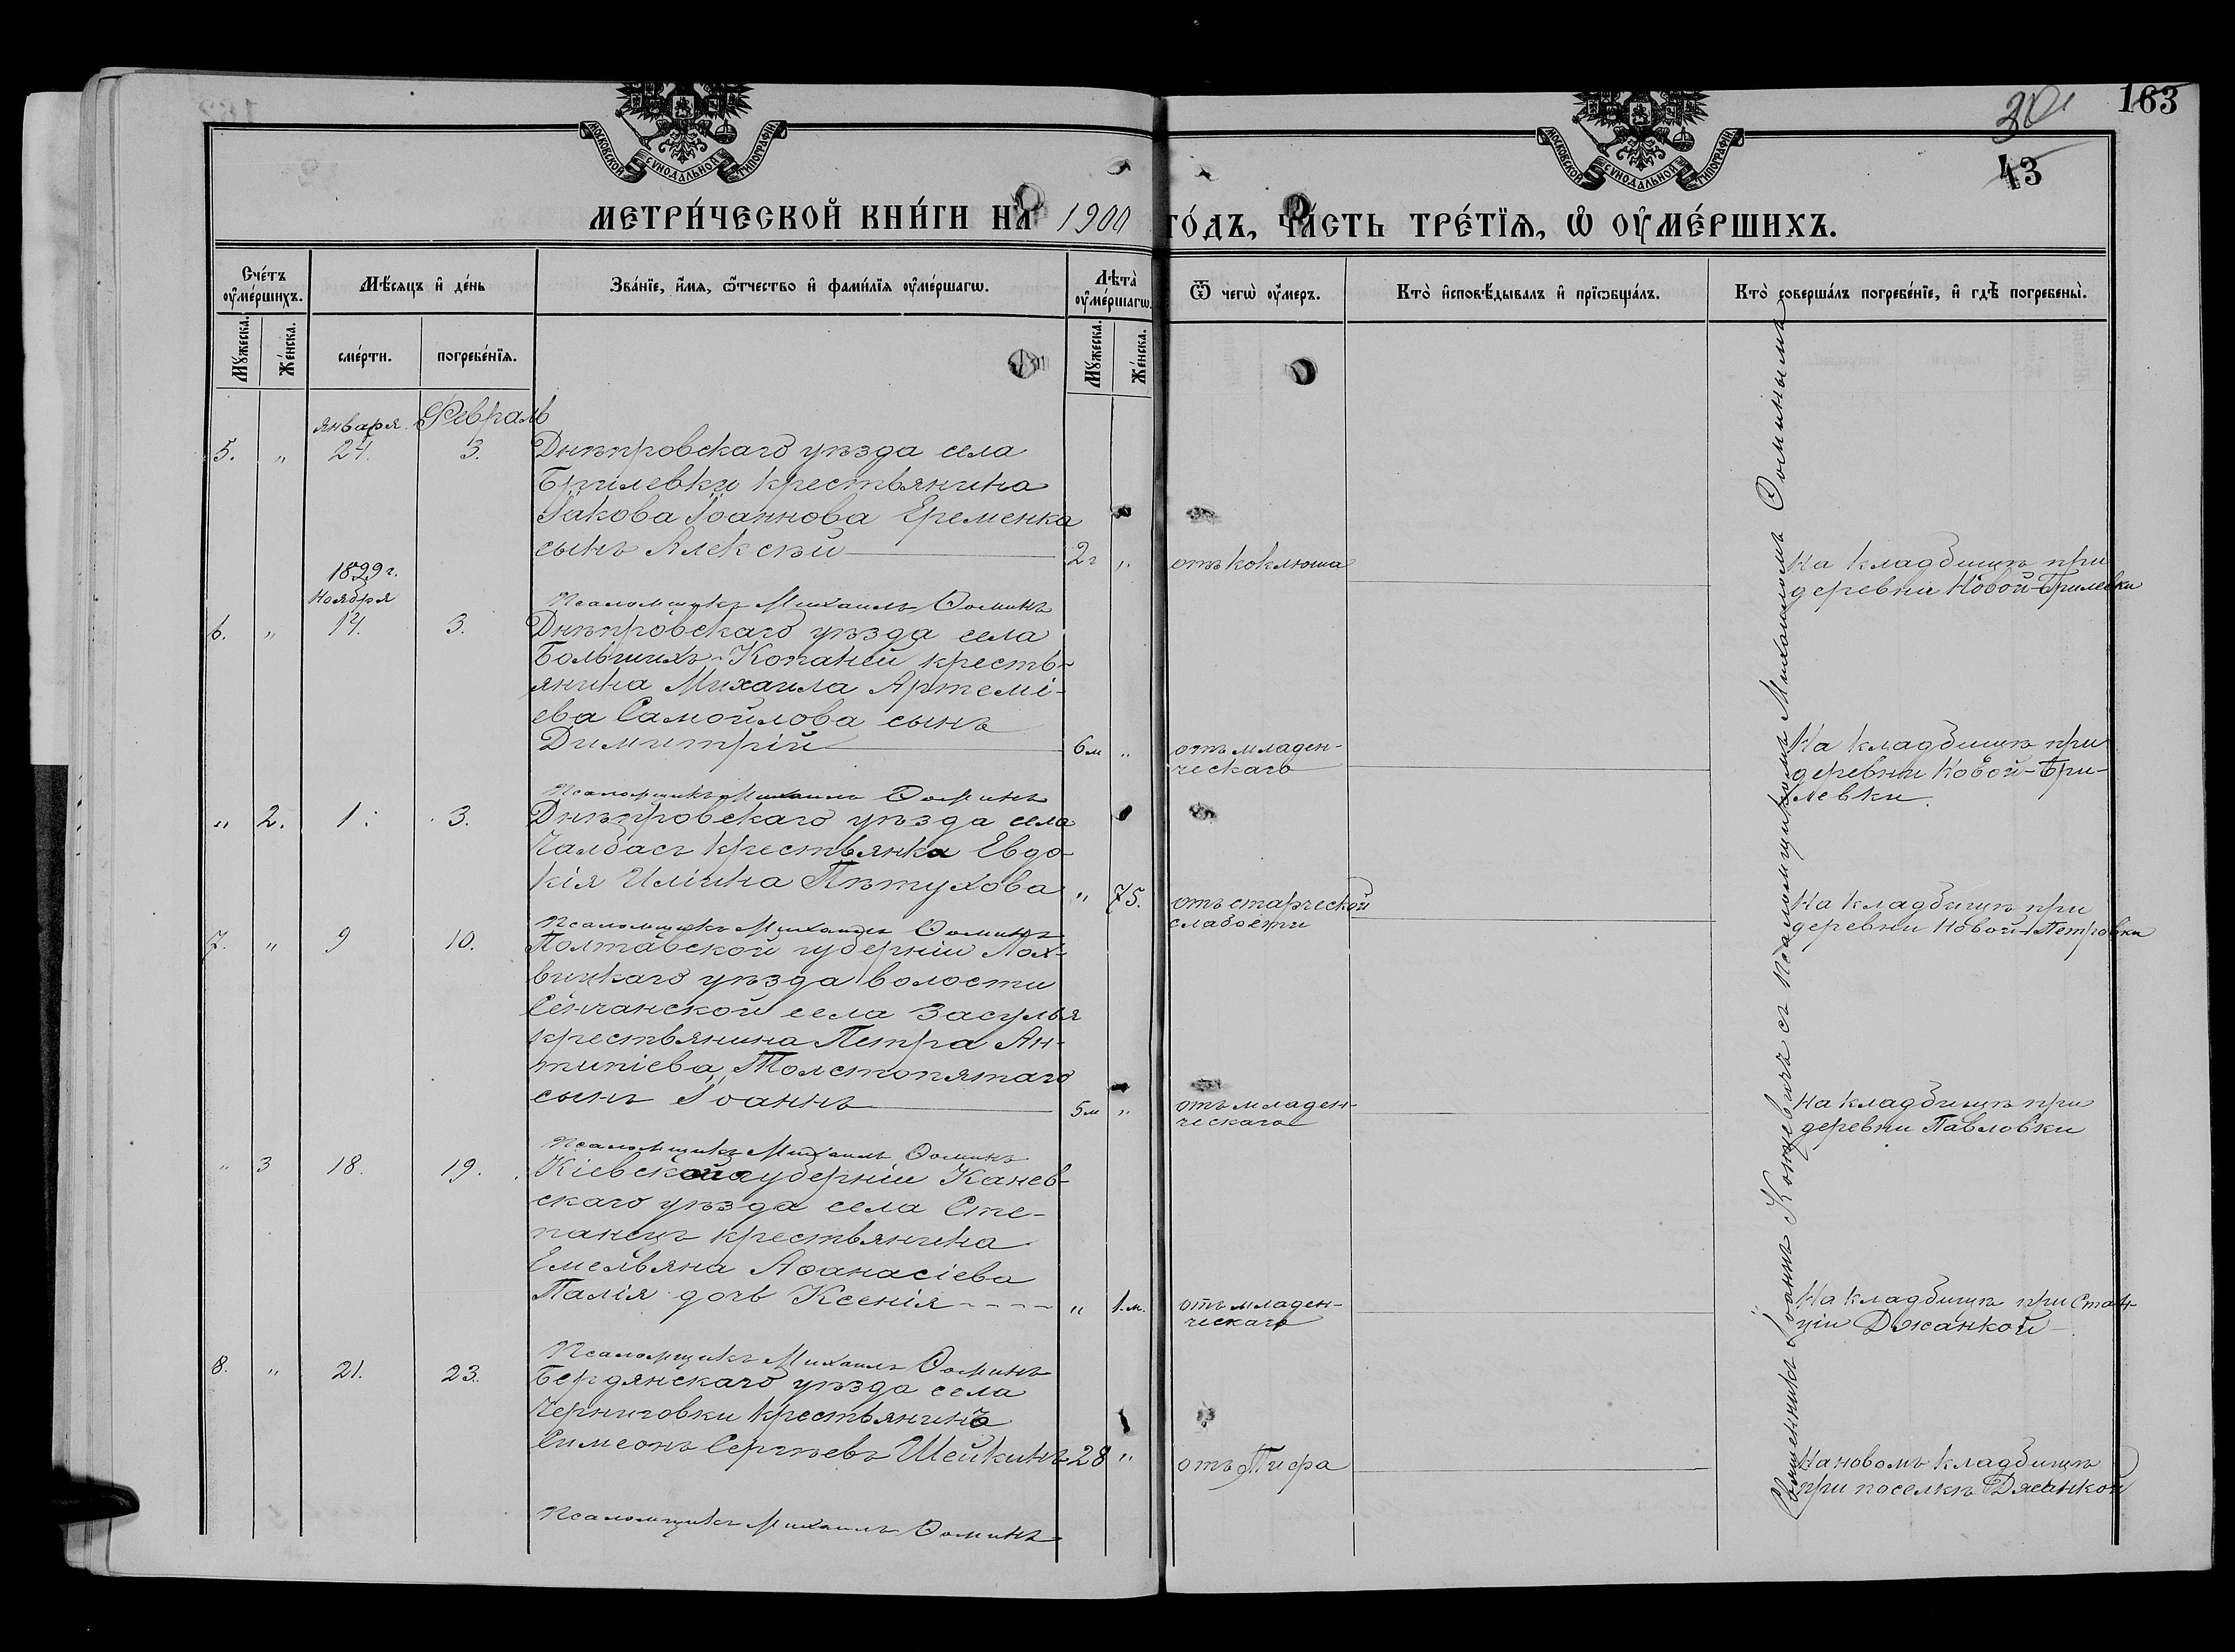 163
301
43
МОСКОВСКОЙ СѴНОДАЛЬНОЙ ТИПОГРАФІИ
МОСКОВСКОЙ СѴНОДАЛЬНОЙ ТИПОГРАФІИ
МЕТРИ́ЧЕСКОЙ КНИ́ГИ НА 1900 ГО́ДЪ, ЧА́СТЬ ТРЕ́ТЇѦ, Ѡ҆ ОУ҆МЕ́РШИХЪ.
Сче́тъ оу҆ме́ршихъ.
Мѣ́сѧцъ и҆ де́нь
Зва́нїе, и҆́мѧ, ѻ҆́тчество и҆ фами́лїѧ оу҆ме́ршагѡ.
Лѣ́та оу҆ме́ршагѡ.
Ѿ чегѡ̀ оу҆́меръ.
Кто̀ и҆сповѣ́дывалъ и҆ прїѡбща́лъ.
Кто̀ соверша́лъ погребе́нїе, и҆ гдѣ̀ погребены̀.
Мꙋ́жеска.
Же́нска.
сме́рти.
погребе́нїѧ.
Мꙋ́жеска.
Же́нска.
января. Февраль
5. " 24. 3. Днѣпровскаго уѣзда села
Брилевки крестьянина
Іакова Іоаннова Еременка
сынъ Алексѣй 2г " отъ коклюша На кладбищѣ при
деревни Новой-Брилевки
1899 г.
Ноября
Псаломщикъ Михаилъ Ѳоминъ
6. " 14. 3. Днѣпровскаго уѣзда села
Большихъ-Копаней кресть-
янина Михаила Артемі-
ева Самойлова сынъ
Димитрій 6м " отъ младен-
ческаго На кладбищѣ при
деревни Новой-Бри-
левки.
Псаломщикъ Михаилъ Ѳоминъ
" 2. 1. 3. Днѣпровскаго уѣзда села
Чалбасъ крестьянка Евдо-
кія Иліина Пѣтухова " 75. отъ старческой
слабости На кладбищѣ при
деревни Новой-Петровки
Псаломщикъ Михаилъ Ѳоминъ
7. " 9 10. Полтавской губерніи Лох-
вицкаго уѣзда волости
Сенчанской села Засулья
крестьянина Петра Ан-
типіева Толстопятаго
сынъ Іоаннъ 5м " отъ младен-
ческаго На кладбищѣ при
деревни Павловки
Псаломщикъ Михаилъ Ѳоминъ
" 3 18. 19. Кіевской губерніи Канев-
скаго уѣзда села Сте-
панецъ крестьянина
Емельяна Аѳанасіева
Палія дочь Ксенія " 1.м. отъ младен-
ческаго На кладбищѣ при Стан-
ціи Джанкой
Псаломщикъ Михаилъ Ѳоминъ
8. " 21. 23. Бердянскаго уѣзда села
Черниговки крестьянинъ
Симеонъ Сергѣевъ Шейкинъ 28 " отъ Тифа На новомъ кладбищѣ
при поселкѣ Джанкой
Псаломщикъ Михаилъ Ѳоминъ
Священникъ Іоаннъ съ псаломщикомъ Михаиломъ Ѳоминымъ